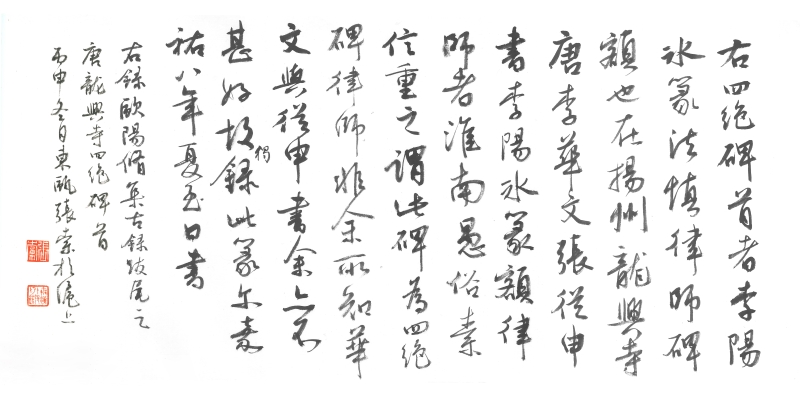 右四绝碑首者李陽
冰篆法慎律師碑
額也在揚州龍興寺
唐李華文張從申
書李陽冰篆額律
師者淮南愚俗素
信重之謂此碑為四绝
碑律師非余所知華
文與從申書余亦不
甚好故獨録此篆尔嘉
祐八年夏至日書
右録歐陽脩集古録跋尾之
唐龍興寺四绝碑首
丙申冬日東甌張索於滬上